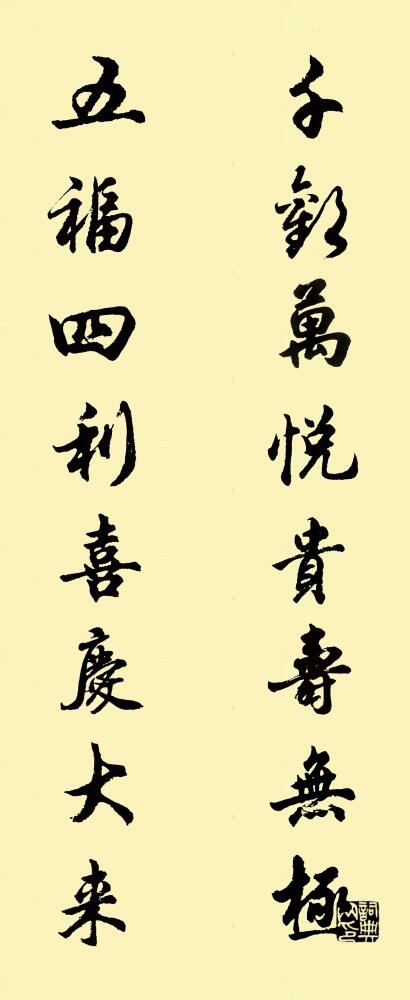 千歡萬悦貴壽無極
五福四利喜慶大来
詞典